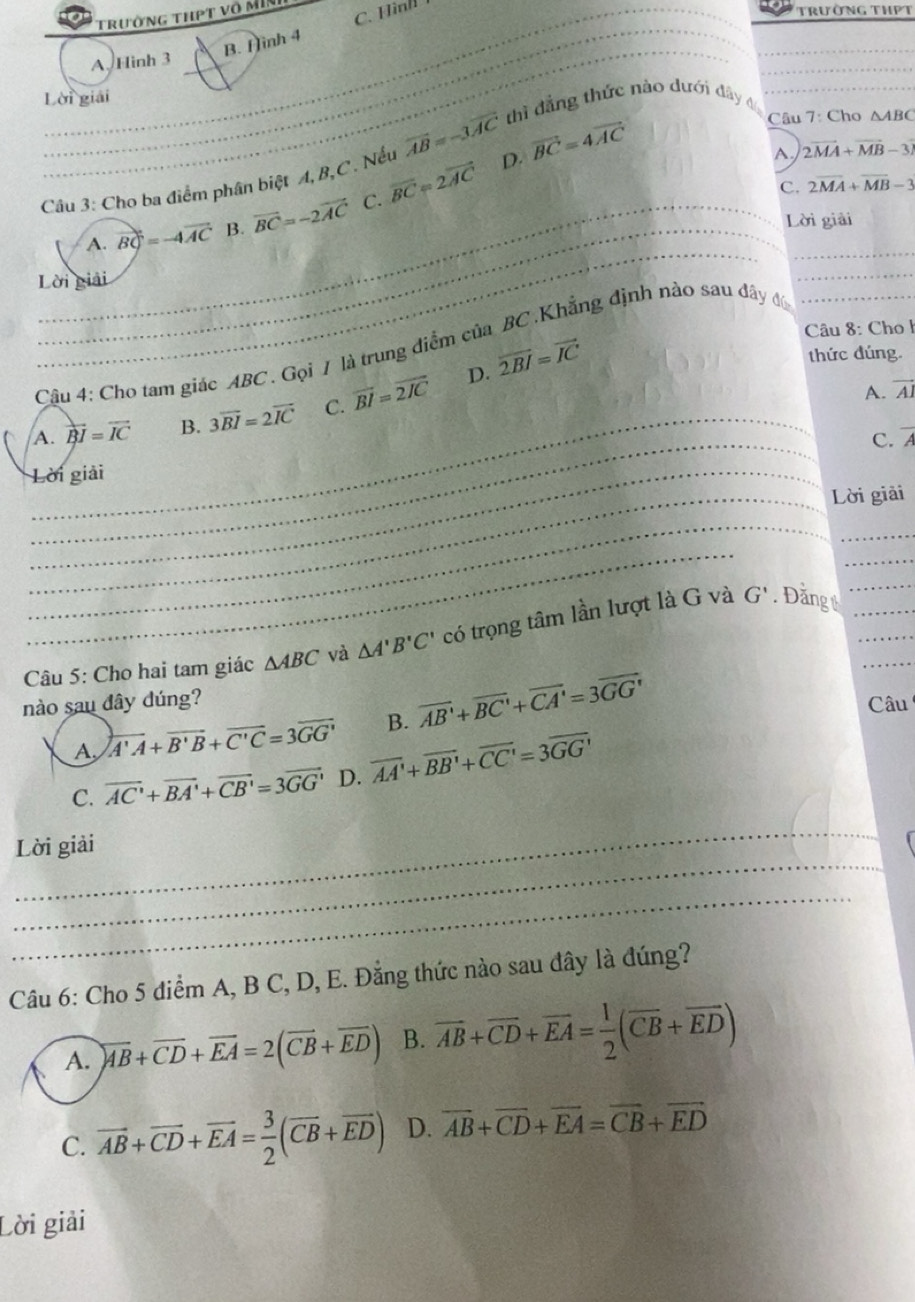 TRƯỜNG THPT VÕ
A. Hình 3 B. Hình 4 C. Hình
Lời giải
Câu 3: Cho ba điểm phân biệt A, B, C. Nếu \overrightarrow{AB} = -3\overrightarrow{AC} thì đẳng thức nào dưới đây
A. \overrightarrow{BC} = -4\overrightarrow{AC} B. \overrightarrow{BC} = -2\overrightarrow{AC} C. \overrightarrow{BC} = 2\overrightarrow{AC} D. \overrightarrow{BC} = 4\overrightarrow{AC}
Lời giải
Câu 4: Cho tam giác ABC. Gọi I là trung điểm của BC .Khẳng định nào sau đây
A. \overrightarrow{BI} = \overrightarrow{IC} B. 3\overrightarrow{BI} = 2\overrightarrow{IC} C. \overrightarrow{BI} = \overrightarrow{2IC} D. \overrightarrow{2BI} = \overrightarrow{IC}
Lời giải
Câu 5: Cho hai tam giác ΔABC và ΔA'B'C' có trọng tâm lần lượt là G và G'. Đẳng
nào sau đây đúng?
A. \overrightarrow{A'A} + \overrightarrow{B'B} + \overrightarrow{C'C} = 3\overrightarrow{GG'} B. \overrightarrow{AB'} + \overrightarrow{BC'} + \overrightarrow{CA'} = 3\overrightarrow{GG'}
C. \overrightarrow{AC'} + \overrightarrow{BA'} + \overrightarrow{CB'} = 3\overrightarrow{GG'} D. \overrightarrow{AA'} + \overrightarrow{BB'} + \overrightarrow{CC'} = 3\overrightarrow{GG'}
Lời giải
Câu 6: Cho 5 điểm A, B C, D, E. Đẳng thức nào sau đây là đúng?
A. \overrightarrow{AB} + \overrightarrow{CD} + \overrightarrow{EA} = 2(\overrightarrow{CB} + \overrightarrow{ED}) B. \overrightarrow{AB} + \overrightarrow{CD} + \overrightarrow{EA} = \frac{1}{2}(\overrightarrow{CB} + \overrightarrow{ED})
C. \overrightarrow{AB} + \overrightarrow{CD} + \overrightarrow{EA} = \frac{3}{2}(\overrightarrow{CB} + \overrightarrow{ED}) D. \overrightarrow{AB} + \overrightarrow{CD} + \overrightarrow{EA} = \overrightarrow{CB} + \overrightarrow{ED}
Lời giải
TRƯỜNG THPT
Câu 7: Cho ΔABC
A. 2\overrightarrow{MA} + \overrightarrow{MB} - 3
C. 2\overrightarrow{MA} + \overrightarrow{MB} - 3
Lời giải
Câu 8: Cho
thức đúng.
A. \overrightarrow{AI}
C. \overrightarrow{A}
Lời giải
Câu